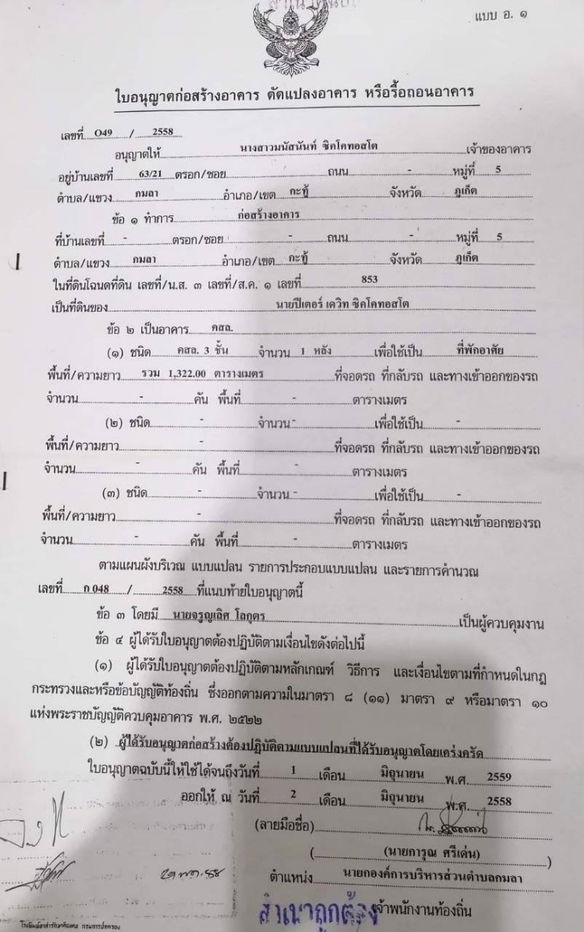 แบบ อ. ๑
ใบอนุญาตก่อสร้างอาคาร ดัดแปลงอาคาร หรือรื้อถอนอาคาร
เลขที่ O49 / 2558
อนุญาตให้ นางสาวมนัสนันท์ ซิคโคทอสโต เจ้าของอาคาร
อยู่บ้านเลขที่ 63/21 ตรอก/ซอย ถนน - หมู่ที่ 5
ตำบล/แขวง กมลา อำเภอ/เขต กะทู้ จังหวัด ภูเก็ต
ข้อ ๑ ทำการ ก่อสร้างอาคาร
ที่บ้านเลขที่ - ตรอก/ซอย - ถนน - หมู่ที่ 5
ตำบล/แขวง กมลา อำเภอ/เขต กะทู้ จังหวัด ภูเก็ต
ในที่ดินโฉนดที่ดิน เลขที่/น.ส. ๓ เลขที่/ส.ค. ๑ เลขที่ 853
เป็นที่ดินของ นายปีเตอร์ เควิท ซิคโคทอสโต
ข้อ ๒ เป็นอาคาร คสล.
(๑) ชนิด คสล. 3 ชั้น จำนวน 1 หลัง เพื่อใช้เป็น ที่พักอาศัย
พื้นที่/ความยาว รวม 1,322.00 ตารางเมตร ที่จอดรถ ที่กลับรถ และทางเข้าออกของรถ
จำนวน - คัน พื้นที่ - ตารางเมตร
(๒) ชนิด - จำนวน - เพื่อใช้เป็น -
พื้นที่/ความยาว - ที่จอดรถ ที่กลับรถ และทางเข้าออกของรถ
จำนวน - คัน พื้นที่ - ตารางเมตร
(๓) ชนิด - จำนวน - เพื่อใช้เป็น -
พื้นที่/ความยาว - ที่จอดรถ ที่กลับรถ และทางเข้าออกของรถ
จำนวน - คัน พื้นที่ - ตารางเมตร
ตามแผนผังบริเวณ แบบแปลน รายการประกอบแบบแปลน และรายการคำนวณ
เลขที่ ก 048 / 2558 ที่แนบท้ายใบอนุญาตนี้
ข้อ ๓ โดยมี นายจรูญเลิศ โลกุตร เป็นผู้ควบคุมงาน
ข้อ ๔ ผู้ได้รับใบอนุญาตต้องปฏิบัติตามเงื่อนไขดังต่อไปนี้
(๑) ผู้ได้รับใบอนุญาตต้องปฏิบัติตามหลักเกณฑ์ วิธีการ และเงื่อนไขตามที่กำหนดในกฎ
กระทรวงและหรือข้อบัญญัติท้องถิ่น ซึ่งออกตามความในมาตรา ๘ (๑๑) มาตรา ๙ หรือมาตรา ๑๐
แห่งพระราชบัญญัติควบคุมอาคาร พ.ศ. ๒๕๒๒
(๒) ผู้ได้รับอนุญาตก่อสร้างต้องปฏิบัติตามแบบแปลนที่ได้รับอนุญาตโดยเคร่งครัด
ใบอนุญาตฉบับนี้ให้ใช้ได้จนถึงวันที่ 1 เดือน มิถุนายน พ.ศ. 2559
ออกให้ ณ วันที่ 2 เดือน มิถุนายน พ.ศ. 2558
(ลายมือชื่อ)
(นายการุณ ศรีเด่น)
ตำแหน่ง นายกองค์การบริหารส่วนตำบลกมลา
สำเนาถูกต้อง เจ้าพนักงานท้องถิ่น